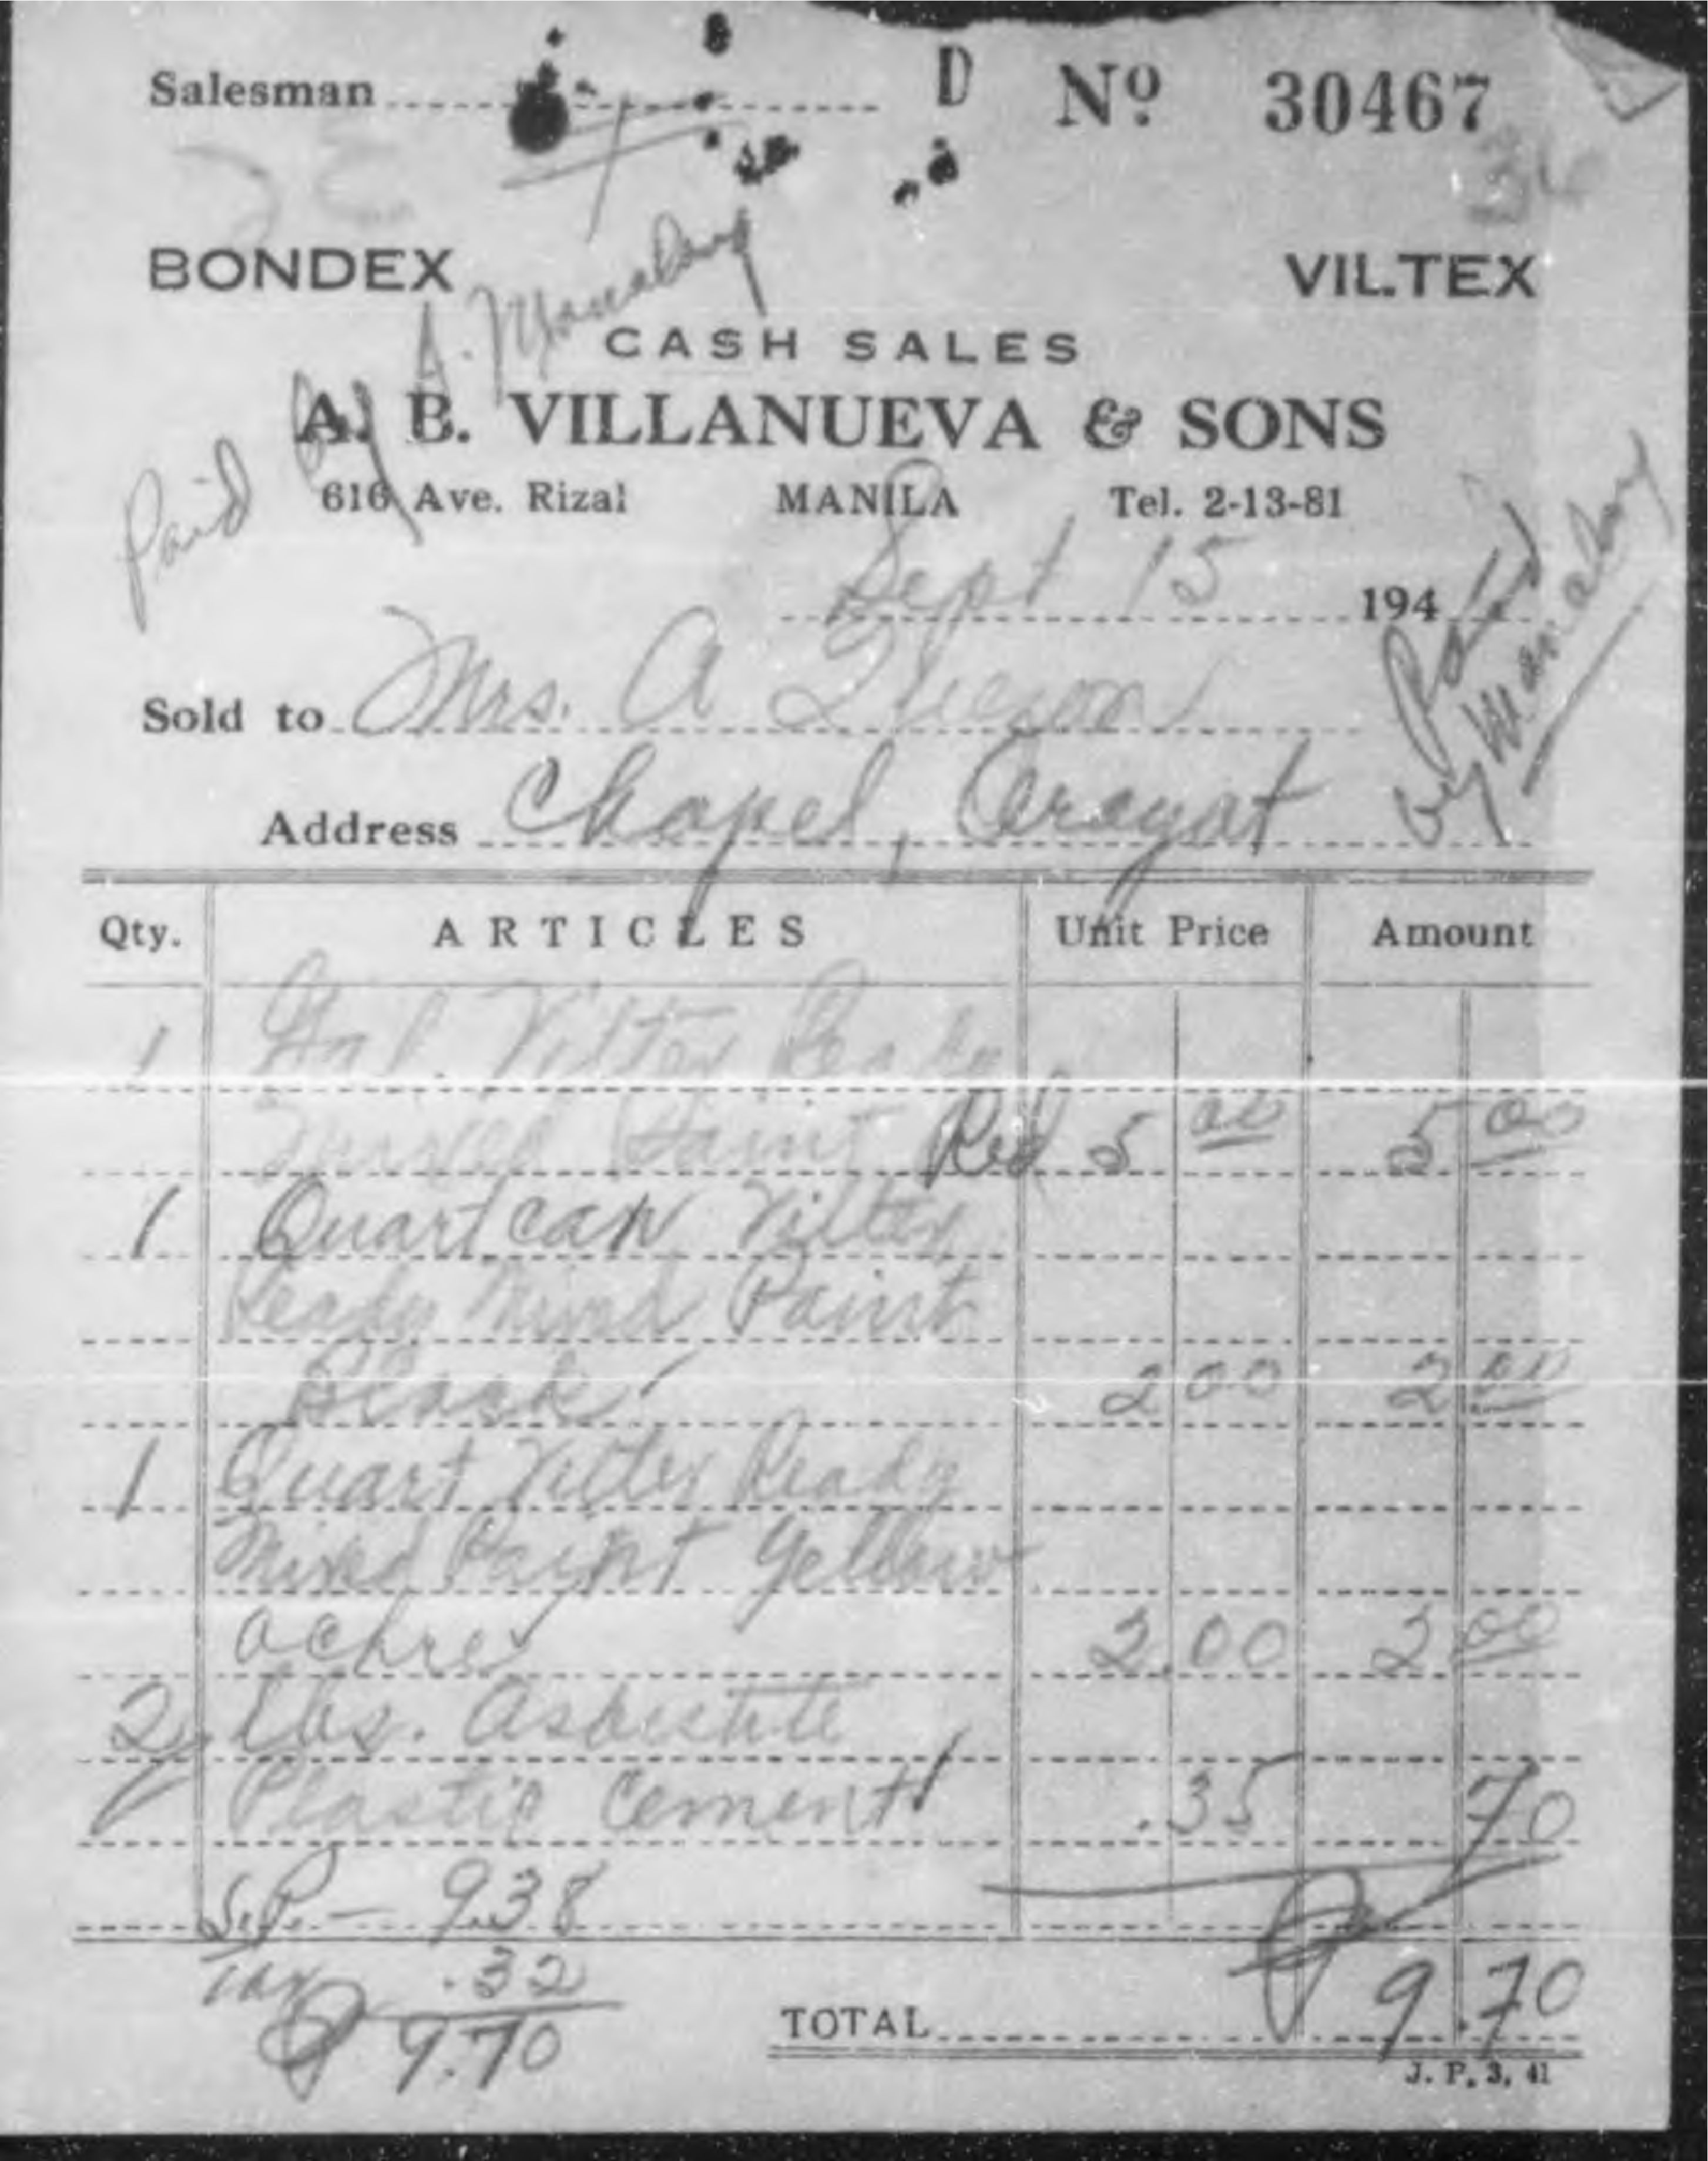 Salesman D No 30467
BONDEX VILTEX
Paid by A. Manalang
CASH SALES
A. B. VILLANUEVA & SONS
616 Ave. Rizal MANILA Tel. 2-13-81
Sept 15 194
Paid by Manalang
Sold to Mrs. A
Address Chapel, Arayat
Qty. ARTICLES Unit Price Amount
1 Gal. Viltex Ready
Mixed Paint Red 5 00 5 00
1 Quart can Viltex
Ready Mixed Paint
Black 2 00 2 00
1 Quart Viltex Ready
Mixed Paint Yellow
Ochre 2.00 2 00
2 lbs. Asbestite
Plastic Cement .35 70
S.P. - 9.38
Tax .32
₱ 9.70
TOTAL ₱ 9.70
J. P. 3, 41